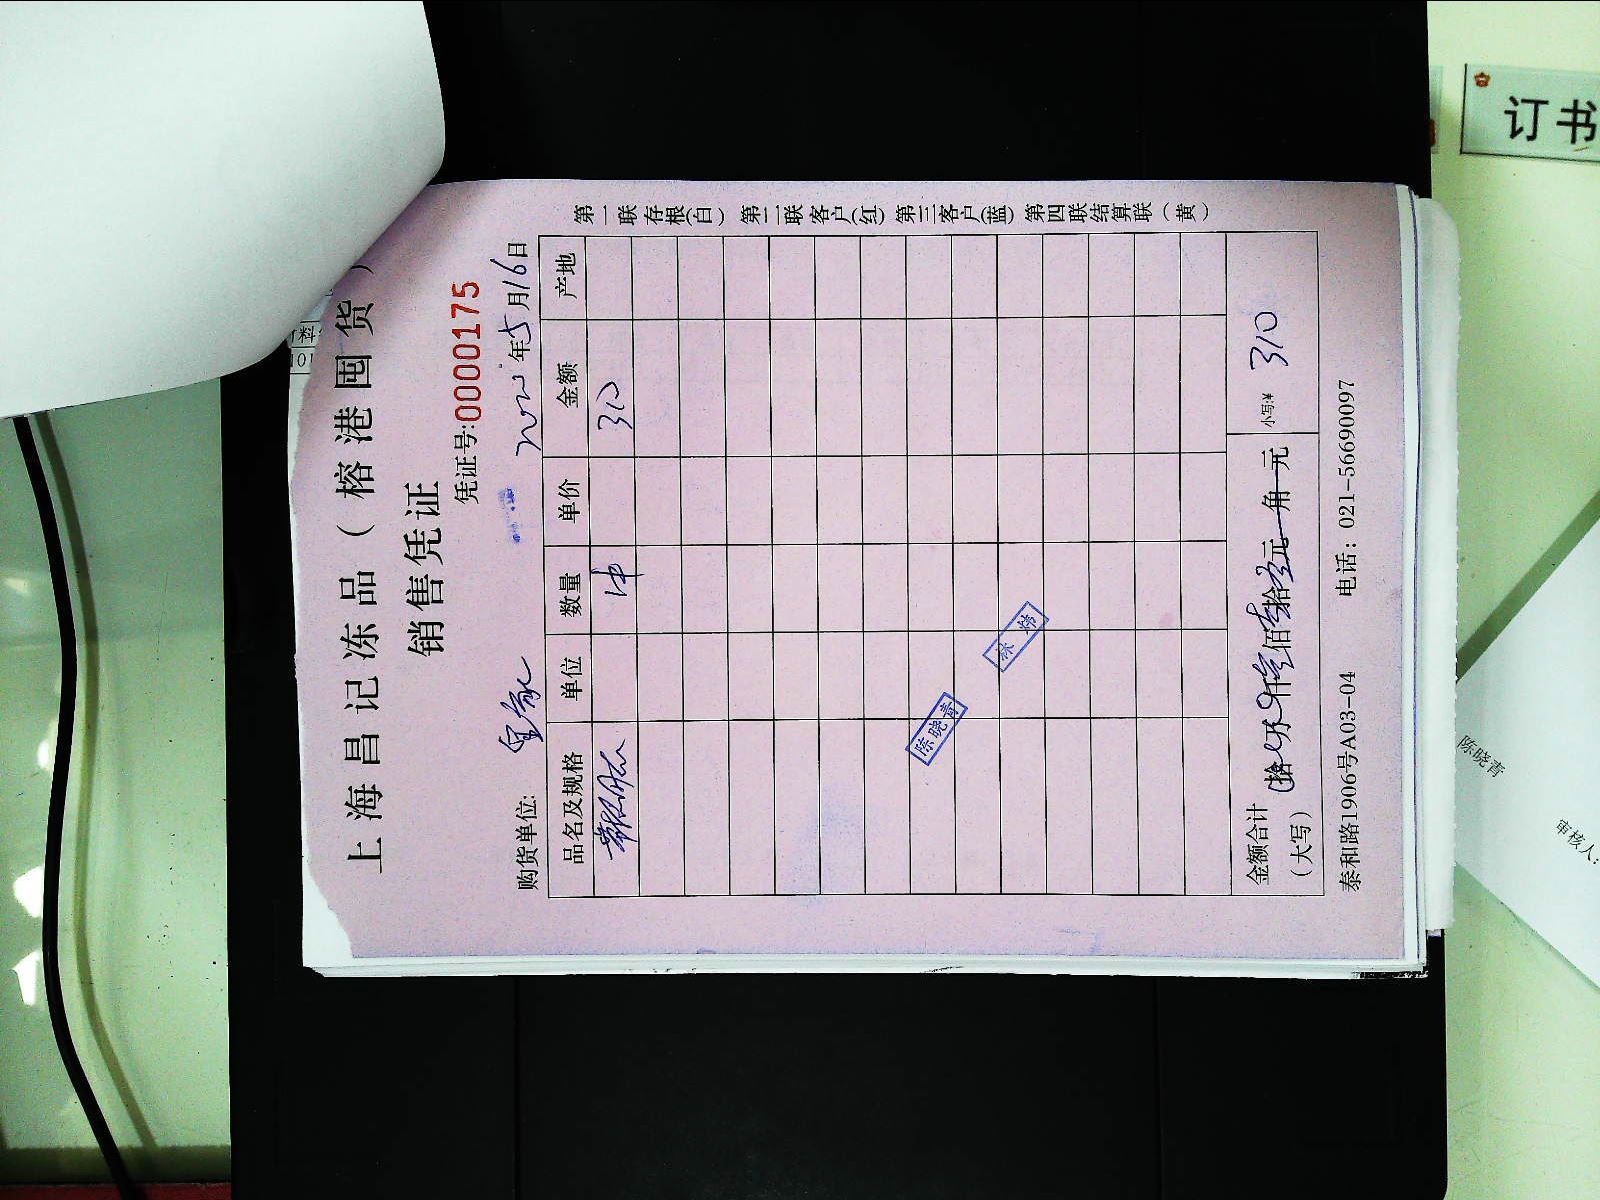 上海昌记冻品（榕港囤货）
销售凭证
凭证号:0000175
购货单位: 年5月16日
品名及规格 单位 数量 单价 金额 产地
1中 310
陈晓青
林炜
金额合计 拾 万 仟 佰 拾 元 角 元 小写:¥ 310
（大写）
泰和路1906号A03-04 电话: 021-56690097
第一联存根(白) 第二联客户(红) 第三客户(蓝) 第四联结算联（黄）
订书
陈晓青
审核人: